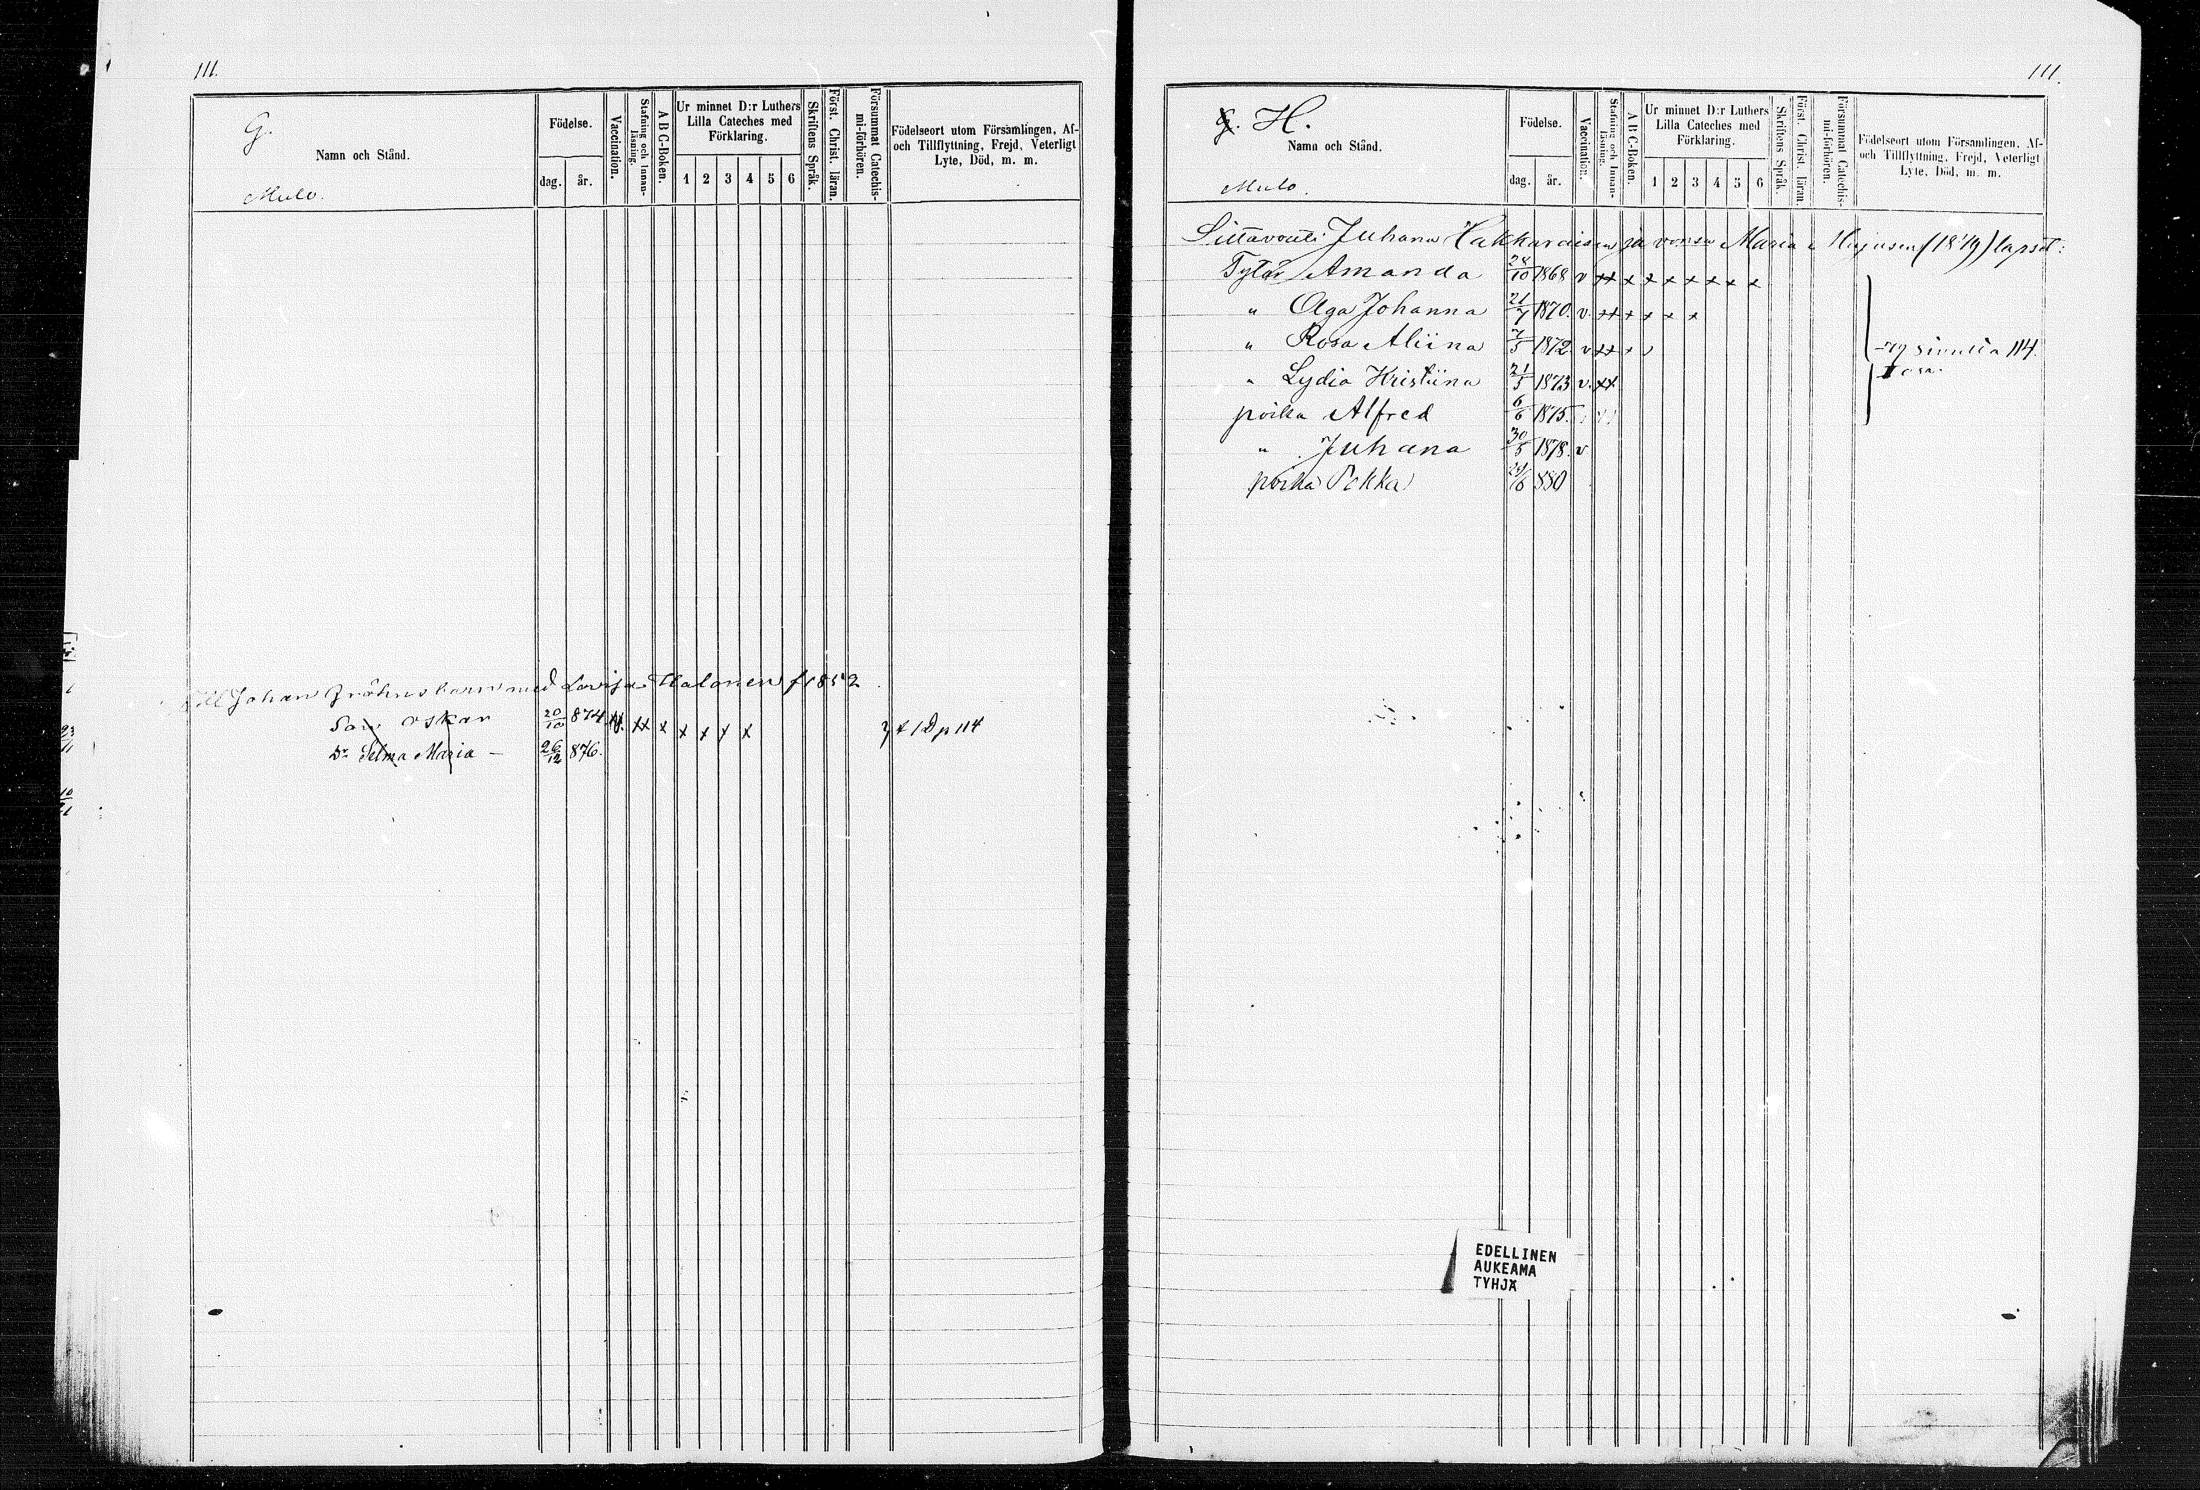 111.
G.
Namn och Stånd.
Mulo.
Födelse.
dag. år.
Vaccination.
Stafning och Innan-läsning.
A B C-Boken.
Ur minnet D:r Luthers Lilla Cateches med Förklaring.
1 2 3 4 5 6
Skriftens Språk.
Först. Christ. läran.
Försummat Catechis-mi-förhören.
Födelseort utom Församlingen, Af- och Tillflyttning, Frejd, Veterligt Lyte, Död, m. m.
Till Johan Gröhns barn med Lovisa Halonen f 1852
Son Oskar 20/10 874 v. xx x x x x x
Dr Selma Maria — 26/12 876.
p 114
111.
G. H.
Namn och Stånd.
Mulo.
Födelse.
dag. år.
Vaccination.
Stafning och Innan-läsning.
A B C-Boken.
Ur minnet D:r Luthers Lilla Cateches med Förklaring.
1 2 3 4 5 6
Skriftens Språk.
Först. Christ. läran.
Försummat Catechis-mi-förhören.
Födelseort utom Församlingen, Af- och Tillflyttning, Frejd, Veterligt Lyte, Död, m. m.
Siltavouti Juhana Hakkaraisen ja vaimon Maria (1849) lapset:
Tytär Amanda 28/10 1868 v xx x x x x x x x
" Olga Johanna 21/7 1870. v. xx x x x x
" Rosa Aliina 7/5 1872. v xx
" Lydia Kristiina 21/5 1873 v. xx
poika Alfred 6/6 1875.
" Juhana 30/5 1878. v
poika Pekka 880
sivulla 114.
I osa.
EDELLINEN
AUKEAMA
TYHJÄ